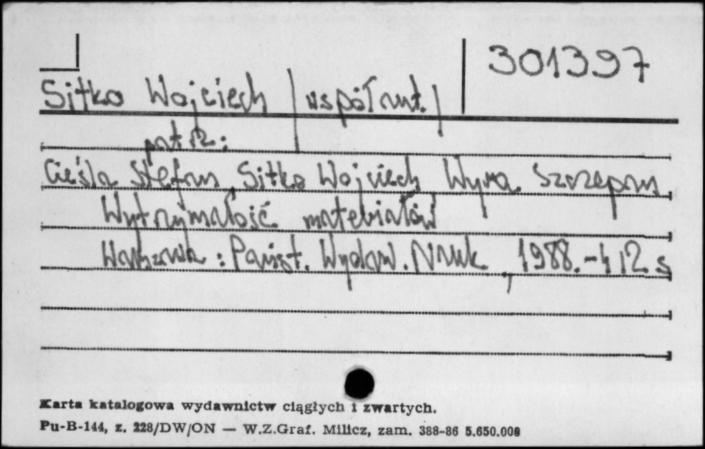 301397
Sitko Wojciech /współaut./
patrz:
Cieśla Stefan, Sitko Wojciech, Wyra Szczepan
Wytrzymałość materiałów
Warszawa : Państ. Wydaw. Nauk., 1988. - 412 s
Karta katalogowa wydawnictw ciągłych i zwartych.
Pu-B-144, z. 228/DW/ON — W.Z.Graf. Milicz, zam. 388-86 5.650.000